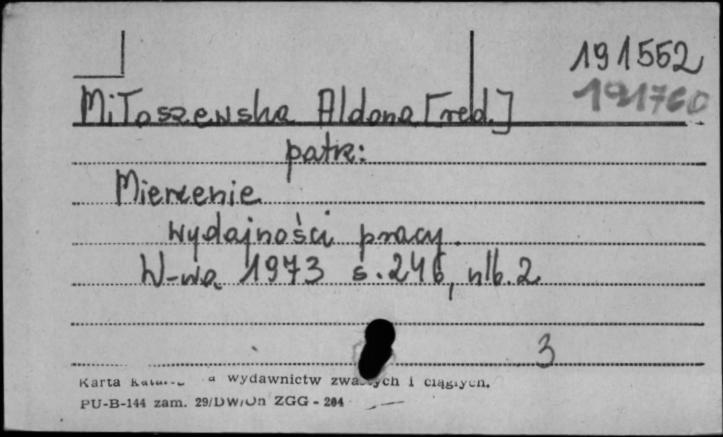 191552
191760
Miłoszewska Aldona [red.]
patrz:
Mierzenie
wydajności pracy.
W-wa 1973 s. 246, nlb. 2
3
Karta a wydawnictw zwartych i ciągłych.
PU-B-144 zam. 29/DW/On ZGG - 264